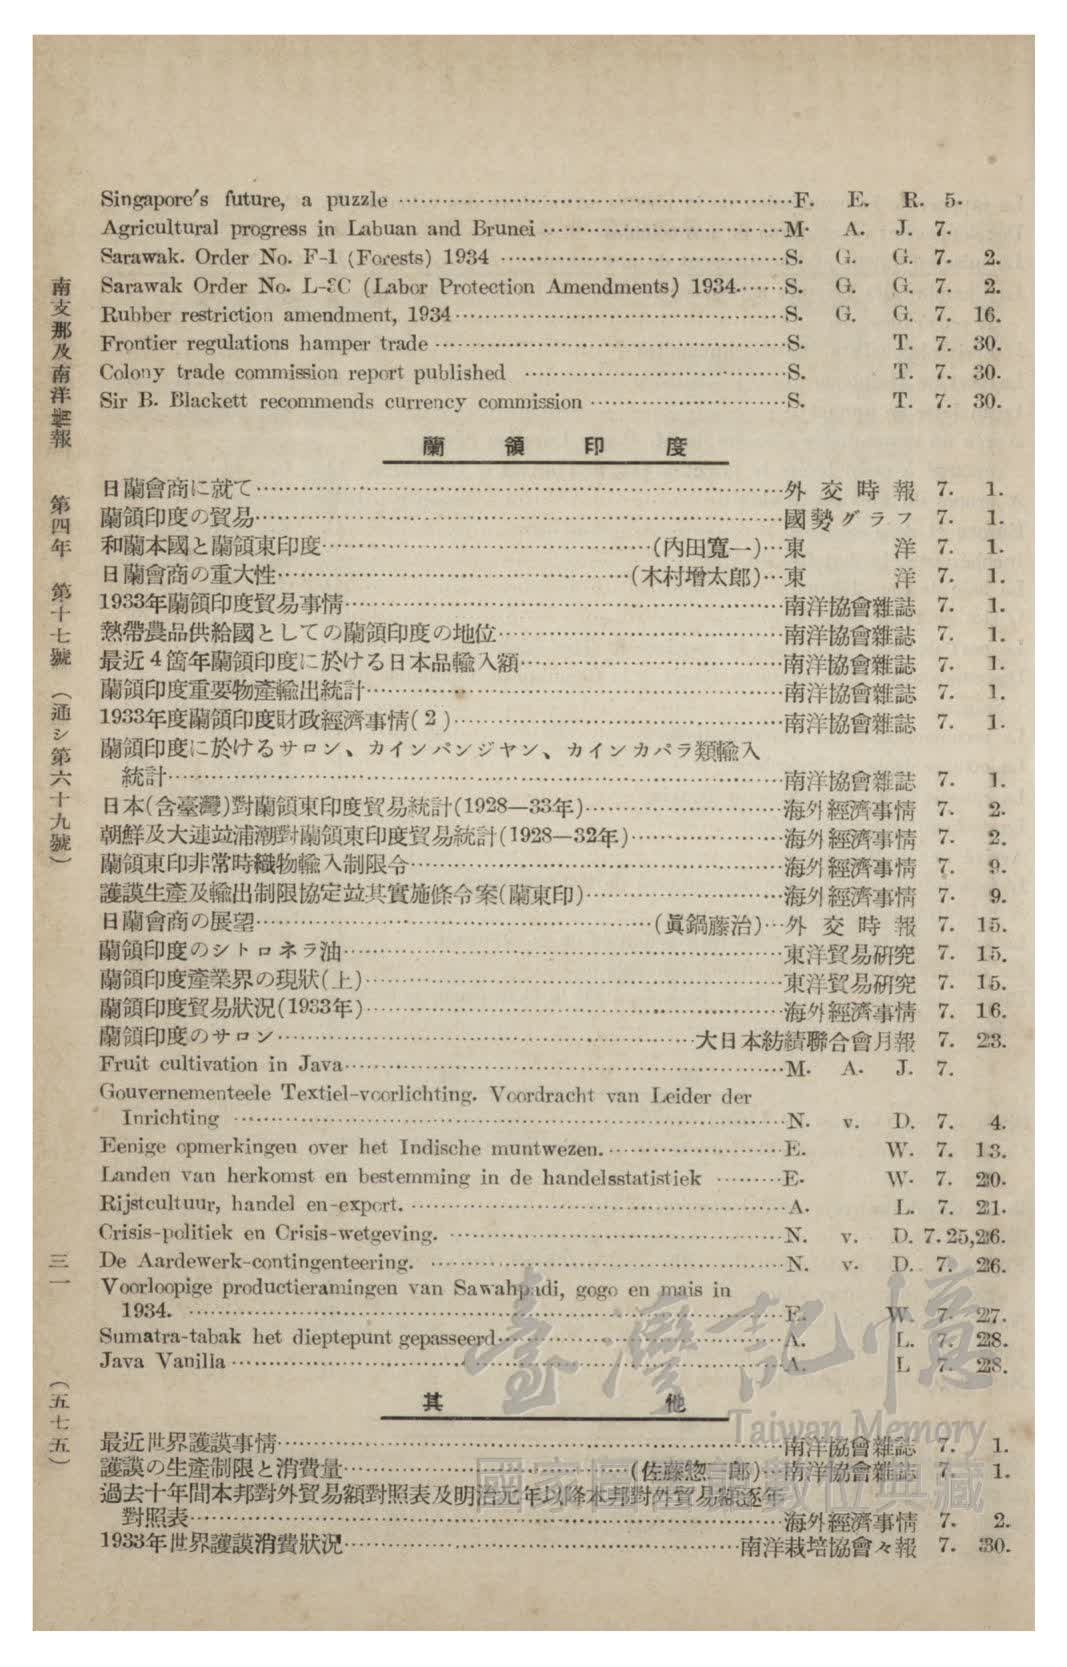 Singapore's future, a puzzle ⋯⋯ F. E. R. 5.
Agricultural progress in Labuan and Brunei ⋯⋯ M. A. J. 7.
Sarawak. Order No. F-1 (Forests) 1934 ⋯⋯ S. G. G. 7. 2.
Sarawak Order No. L-3C (Labor Protection Amendments) 1934. ⋯⋯ S. G. G. 7. 2.
Rubber restriction amendment, 1934 ⋯⋯ S. G. G. 7. 16.
Frontier regulations hamper trade ⋯⋯ S. T. 7. 30.
Colony trade commission report published ⋯⋯ S. T. 7. 30.
Sir B. Blackett recommends currency commission ⋯⋯ S. T. 7. 30.
蘭領印度
日蘭會商に就て ⋯⋯ 外交時報 7. 1.
蘭領印度の貿易 ⋯⋯ 國勢グラフ 7. 1.
和蘭本國と蘭領東印度 ⋯⋯ (內田寬一) ⋯ 東洋 7. 1.
日蘭會商の重大性 ⋯⋯ (木村增太郎) ⋯ 東洋 7. 1.
1933年蘭領印度貿易事情 ⋯⋯ 南洋協會雜誌 7. 1.
熱帶農品供給國としての蘭領印度の地位 ⋯⋯ 南洋協會雜誌 7. 1.
最近4箇年蘭領印度に於ける日本品輸入額 ⋯⋯ 南洋協會雜誌 7. 1.
蘭領印度重要物產輸出統計 ⋯⋯ 南洋協會雜誌 7. 1.
1933年度蘭領印度財政經濟事情(2) ⋯⋯ 南洋協會雜誌 7. 1.
蘭領印度に於けるサロン、カインパンジヤン、カインカパラ類輸入
統計 ⋯⋯ 南洋協會雜誌 7. 1.
日本(含臺灣)對蘭領東印度貿易統計(1928—33年) ⋯⋯ 海外經濟事情 7. 2.
朝鮮及大連竝浦潮對蘭領東印度貿易統計(1928—32年) ⋯⋯ 海外經濟事情 7. 2.
蘭領東印非常時織物輸入制限令 ⋯⋯ 海外經濟事情 7. 9.
護謨生產及輸出制限協定竝其實施條令案(蘭東印) ⋯⋯ 海外經濟事情 7. 9.
日蘭會商の展望 ⋯⋯ (眞鍋藤治) ⋯ 外交時報 7. 15.
蘭領印度のシトロネラ油 ⋯⋯ 東洋貿易硏究 7. 15.
蘭領印度產業界の現狀(上) ⋯⋯ 東洋貿易硏究 7. 15.
蘭領印度貿易狀況(1933年) ⋯⋯ 海外經濟事情 7. 16.
蘭領印度のサロン ⋯⋯ 大日本紡績聯合會月報 7. 23.
Fruit cultivation in Java ⋯⋯ M. A. J. 7.
Gouvernementeele Textiel-voorlichting. Voordracht van Leider der
Inrichting ⋯⋯ N. v. D. 7. 4.
Eenige opmerkingen over het Indische muntwezen. ⋯⋯ E. W. 7. 13.
Landen van herkomst en bestemming in de handelsstatistiek ⋯⋯ E. W. 7. 20.
Rijstcultuur, handel en-export. ⋯⋯ A. L. 7. 21.
Crisis-politiek en Crisis-wetgeving. ⋯⋯ N. v. D. 7. 25,26.
De Aardewerk-contingenteering. ⋯⋯ N. v. D. 7. 26.
Voorloopige productieramingen van Sawahpadi, gogo en mais in
1934. ⋯⋯ E. W. 7. 27.
Sumatra-tabak het dieptepunt gepasseerd ⋯⋯ A. L. 7. 28.
Java Vanilla ⋯⋯ A. L 7. 28.
其他
最近世界護謨事情 ⋯⋯ 南洋協會雜誌 7. 1.
護謨の生產制限と消費量 ⋯⋯ (佐藤惣三郎) ⋯ 南洋協會雜誌 7. 1.
過去十年間本邦對外貿易額對照表及明治元年以降本邦對外貿易額逐年
對照表 ⋯⋯ 海外經濟事情 7. 2.
1933年世界護謨消費狀況 ⋯⋯ 南洋栽培協會々報 7. 30.
南支那及南洋彙報 第四年 第十七號 (通シ第六十九號) 三一 (五七五)
臺灣記憶
Taiwan Memory
國家圖書館數位典藏